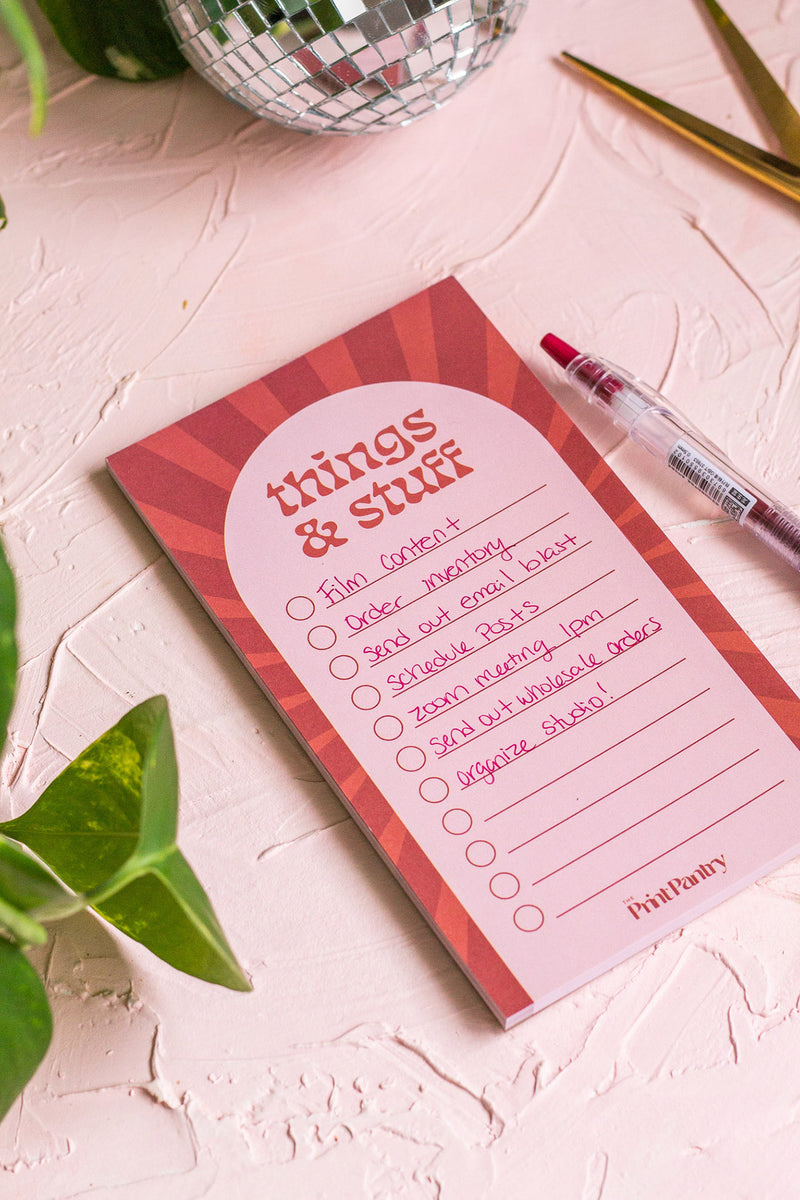 things
& stuff
Film content
Order inventory
send out email blast
schedule Posts
zoom meeting 1pm
send out wholesale orders
organize studio!
THE
Print Pantry